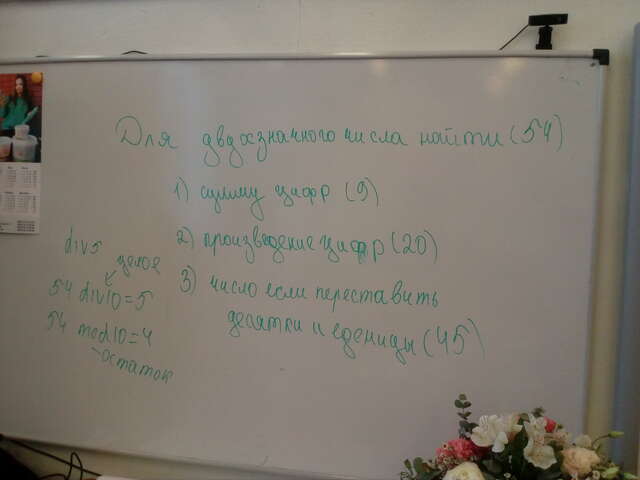 Для двузначного числа найти (54)
1) сумму цифр (9)
2) произведение цифр (20)
3) число если переставить
десятки и еденицы (45)
div5
целое
54 div10=5
54 mod10=4
остаток